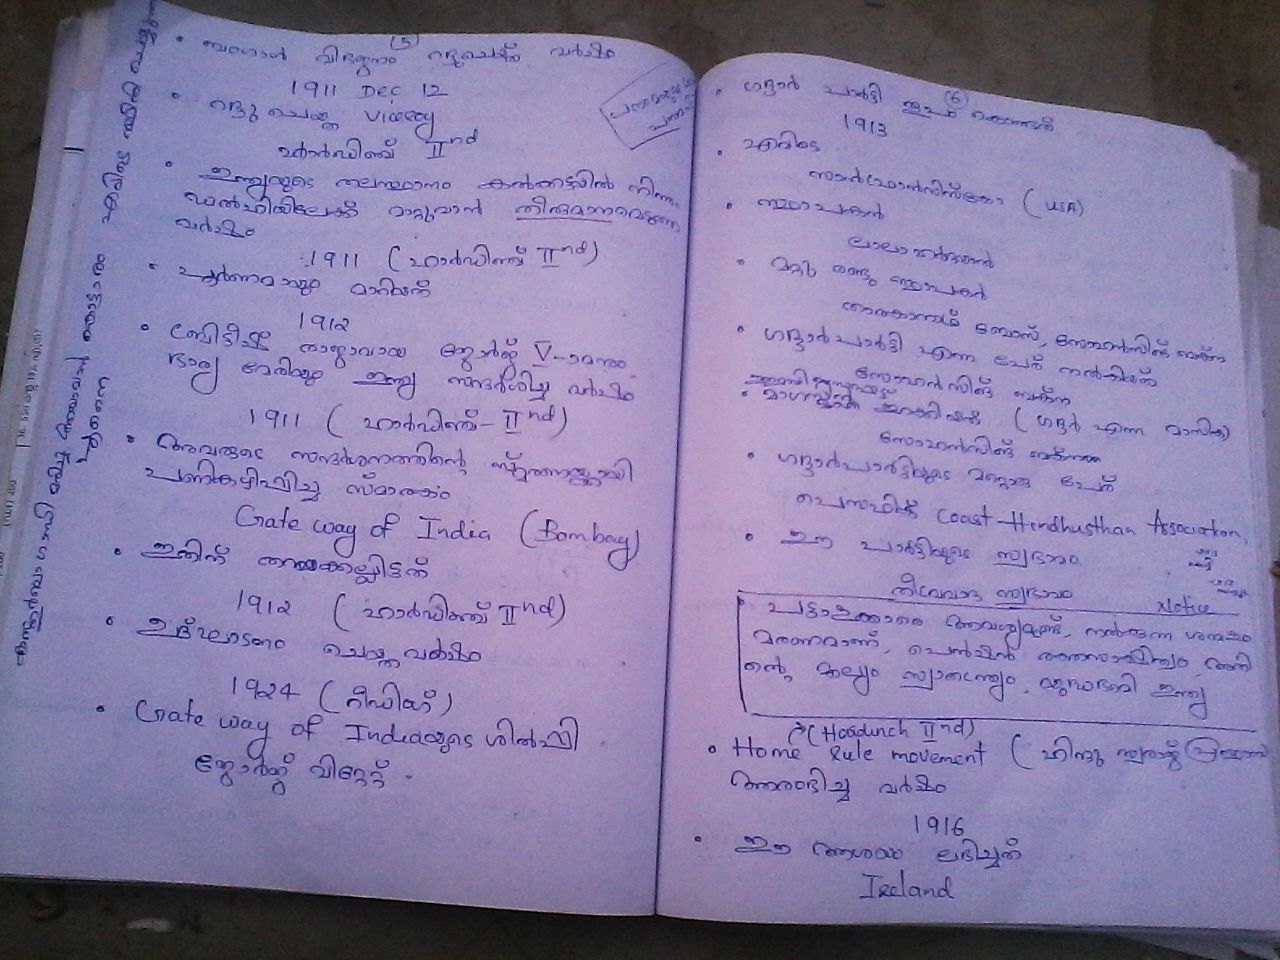 (5)
• ബംഗാൾ വിഭജനം റദ്ദുചെയ്ത വർഷം
1911 Dec 12
• റദ്ദു ചെയ്ത Viceroy
ഹാർഡിഞ്ച് IInd
• ഇന്ത്യയുടെ തലസ്ഥാനം കൽക്കട്ടയിൽ നിന്നും
ഡൽഹിയിലേക്ക് മാറ്റുവാൻ തീരുമാനമെടുത്ത
വർഷം
1911 (ഹാർഡിഞ്ച് IInd)
• പൂർണമായും മാറിയത്
1912
• ബ്രിട്ടീഷ് രാജാവായ ജോർജ്ജ് V-ാമനും
ഭാര്യ മേരിയും ഇന്ത്യ സന്ദർശിച്ച വർഷം
1911 (ഹാർഡിഞ്ച് - IInd)
• അവരുടെ സന്ദർശനത്തിന്റെ സ്മരണയ്ക്കായി
പണികഴിപ്പിച്ച സ്മാരകം
Gate way of India (Bombay)
• ഇതിന് തറക്കല്ലിട്ടത്
1912 (ഹാർഡിഞ്ച് IInd)
• ഉദ്ഘാടനം ചെയ്ത വർഷം
1924 (റീഡിംഗ്)
• Gate way of Indiaയുടെ ശിൽപ്പി
ജോർജ്ജ് വിറ്റേറ്റ്.
(6)
• ഗദ്ദാർ പാർട്ടി രൂപം കൊണ്ടത്
1913
• എവിടെ
സാൻഫ്രാൻസിസ്കോ (USA)
• സ്ഥാപകൻ
ലാലാ ഹർദയാൽ
• മറ്റു രണ്ടു സ്ഥാപകർ
താരകാനാഥ് ബോസ്, സോഹൻസിങ് ബക്ന
• ഗദ്ദാർപാർട്ടി എന്ന പേര് നൽകിയത്
സോഹൻ സിങ് ബക്ന
• (ഗദ്ദർ എന്ന മാസിക)
സോഹൻസിങ് ബക്ന
• ഗദ്ദാർപാർട്ടിയുടെ മറ്റൊരു പേര്
പെസഫിക് Coast Hindhusthan Association.
• ഈ പാർട്ടിയുടെ സ്വഭാവം
തീവ്രവാദ സ്വഭാവം
Notice
• പട്ടാളക്കാരെ ആവശ്യമുണ്ട്, നൽകുന്ന ശമ്പളം
മരണമാണ്, പെൻഷൻ രക്തസാക്ഷിത്വം, അതി
ന്റെ മൂല്യം സ്വാതന്ത്ര്യം, യുദ്ധഭൂമി ഇന്ത്യ
(Hardinch IInd)
• Home Rule movement (ഹിന്ദു സ്വരാജ്
ആരംഭിച്ച വർഷം
1916
• ഈ ആശയം ലഭിച്ചത്
Ireland